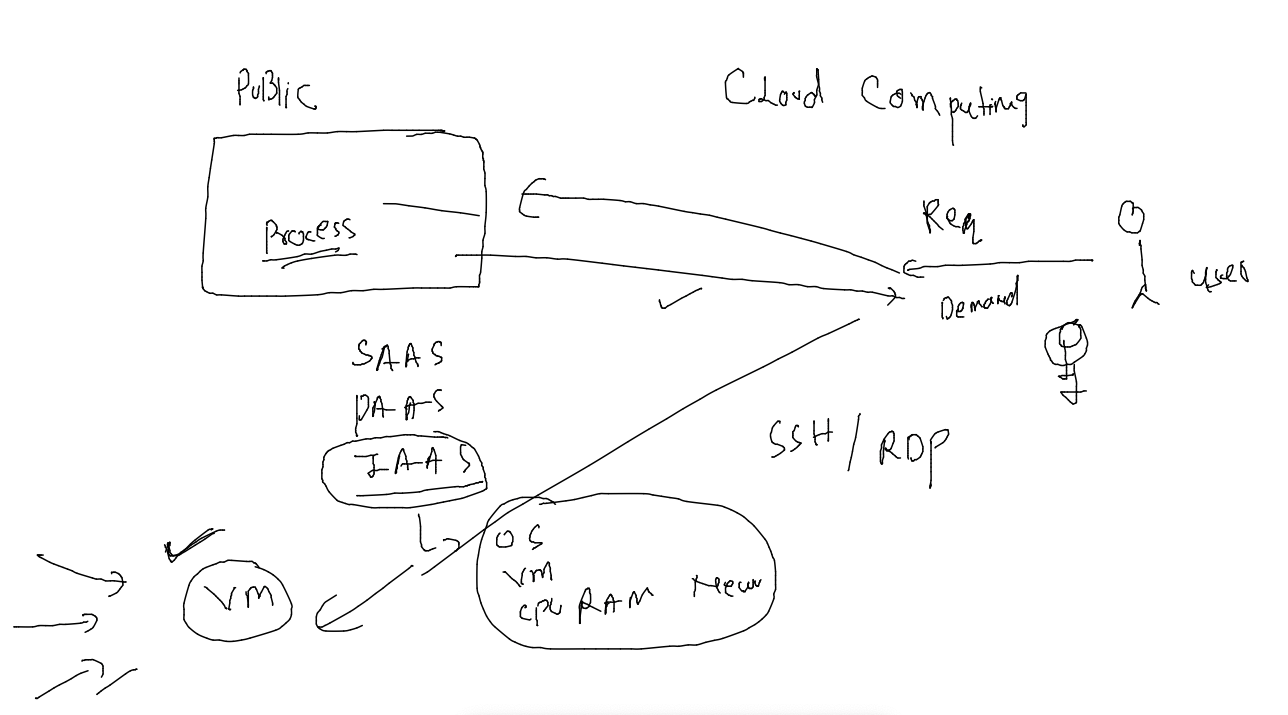 PuBlic
Cloud Computing
Process
Req
Demand
user
SAAS
PAAS
IAAS
SSH / RDP
OS
VM
CPU RAM
VM